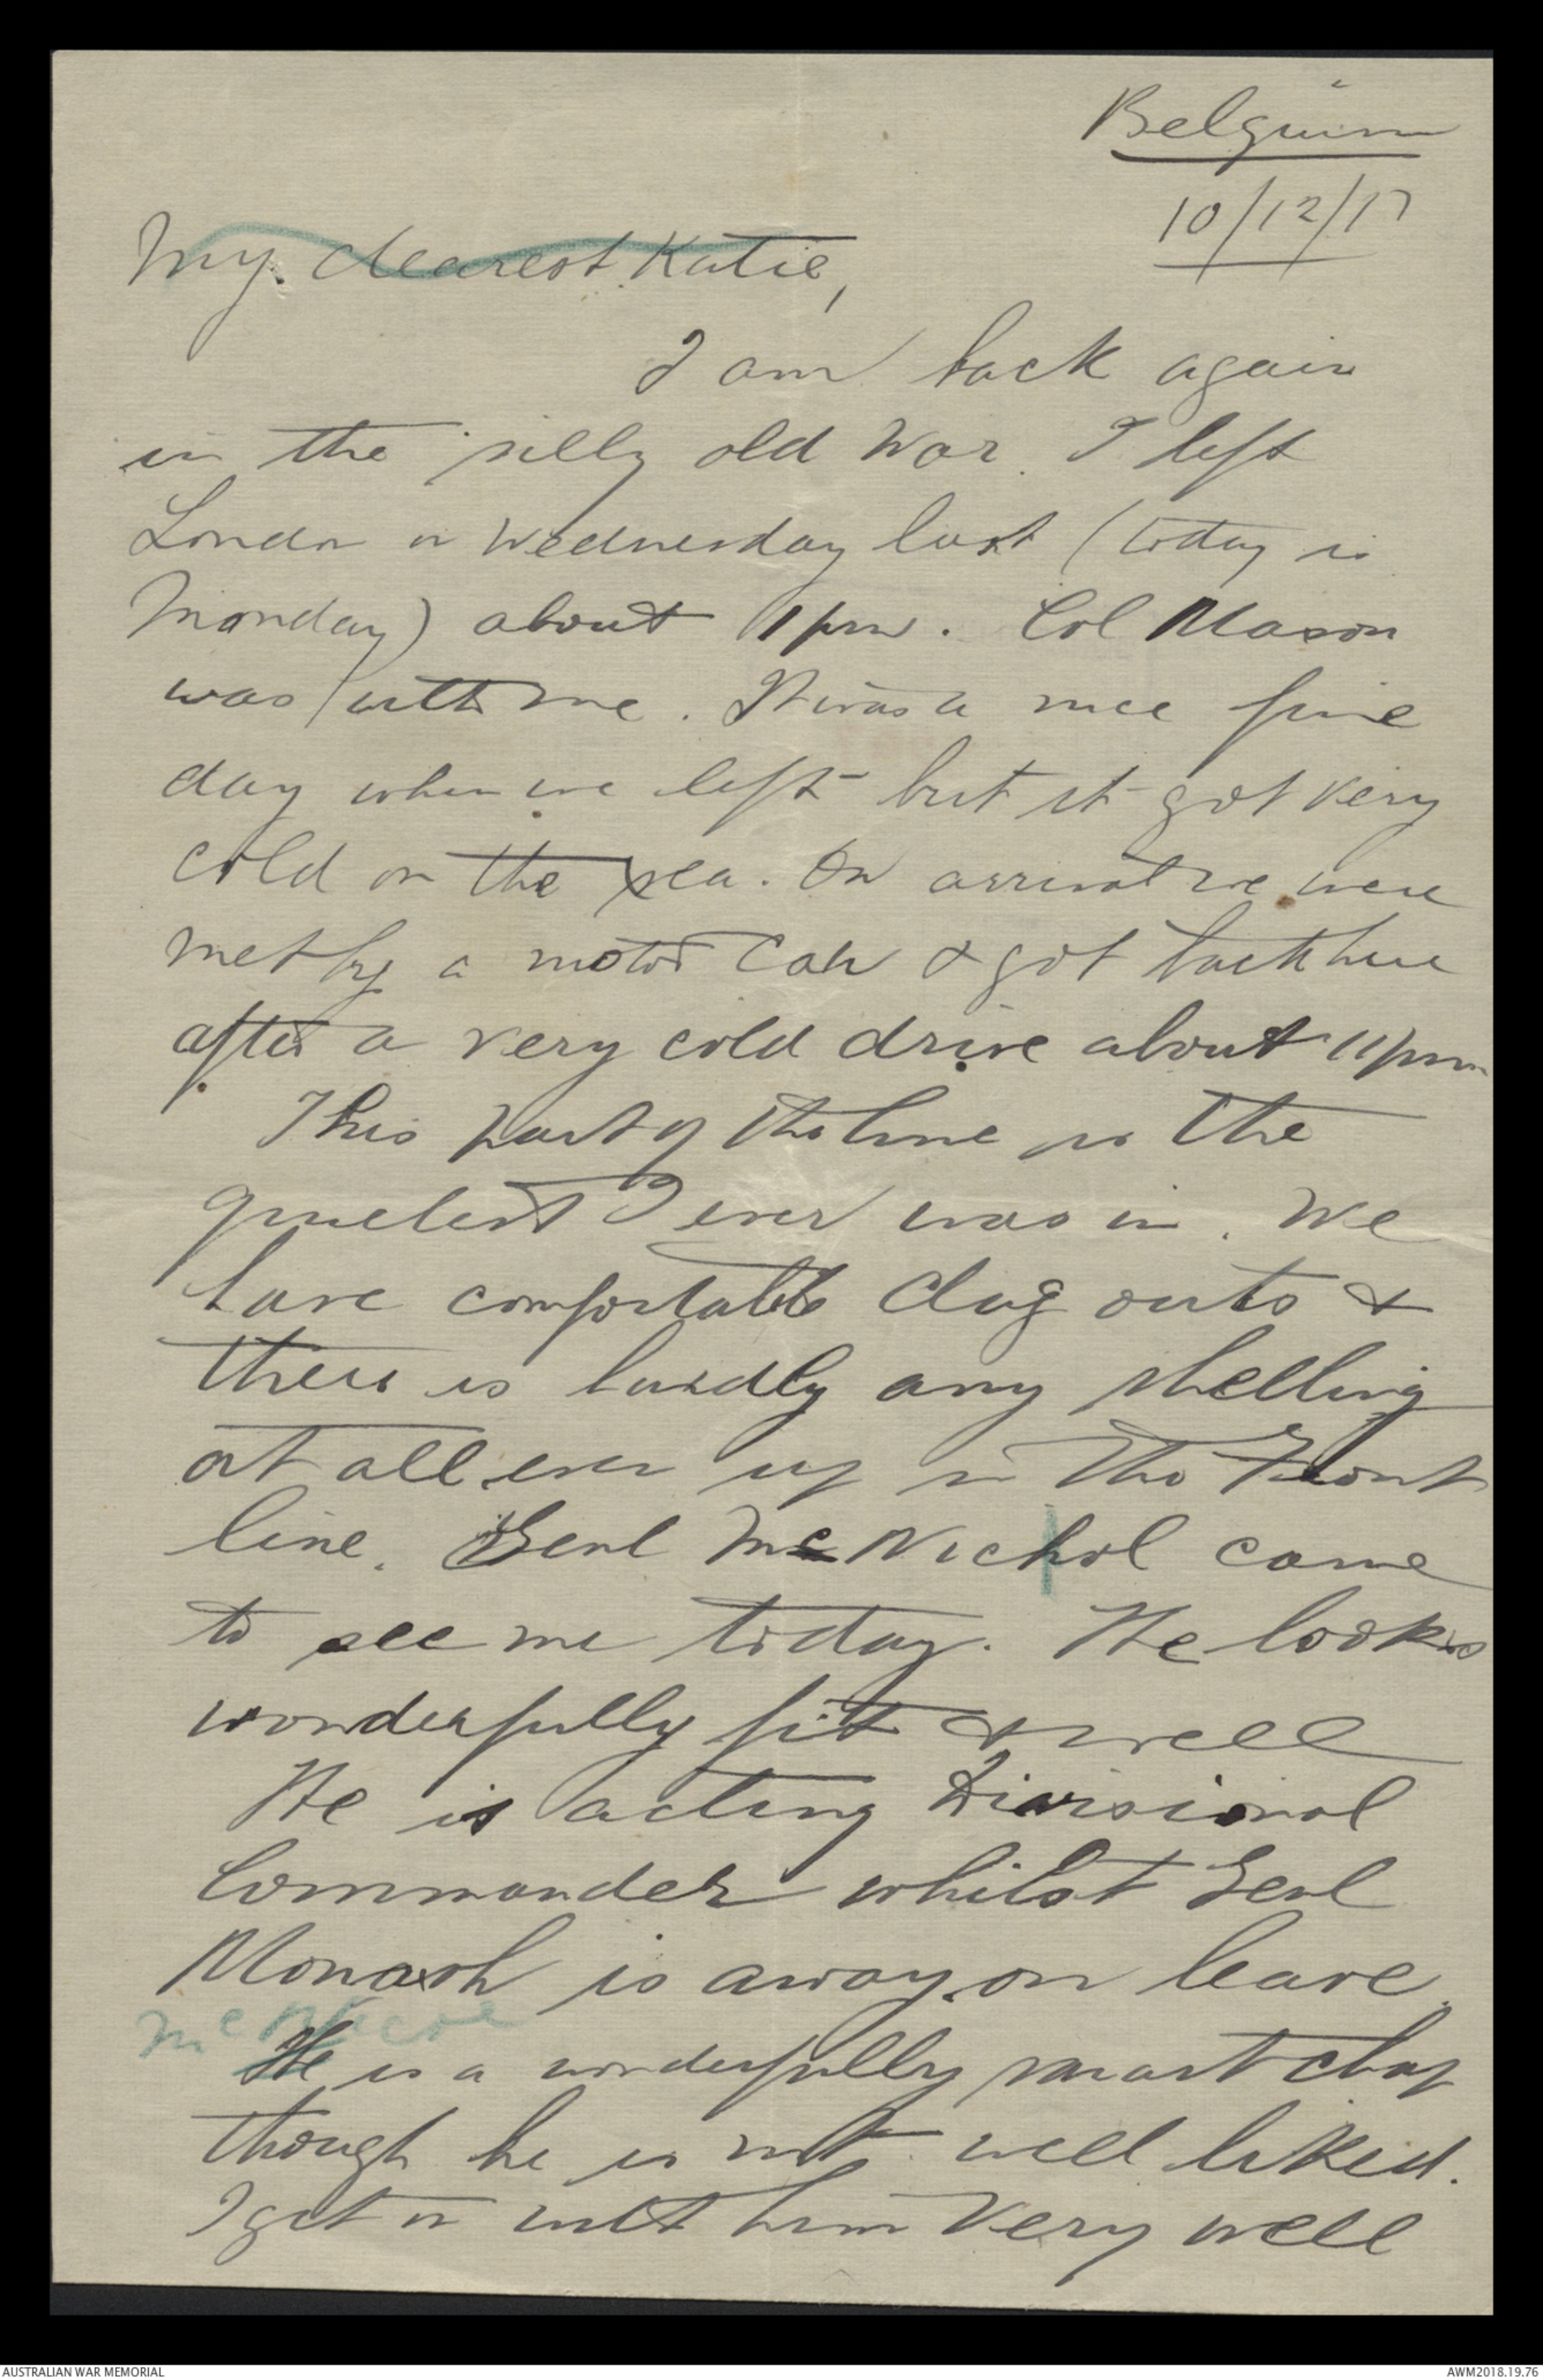 Belguim
10/12/17
My dearest Katie,
I am back again
in the silly old War. I left
London on Wednesday last (today is
Monday) about 1 pm. Col Mason
was with me. It was a nice fine
day when we left but it got very
cold on the sea. On arrival we were
met by a motor car & got back here
after a very cold drive about 11pm
This part of the line is the
quietest I ever was in. We
have comfortable dug outs &
there is hardly any shelling
at all even up in the Front
line. Genl McNichol came
to see me today. He looks
wonderfully fit & well
He is acting Divisional
Commander whilst Genl
Monash is away on leave.
McNicol
He is a wonderfully smart chap
though he is not well liked.
I get on with him very well
AUSTRALIAN WAR MEMORIAL
AWM2018.19.76